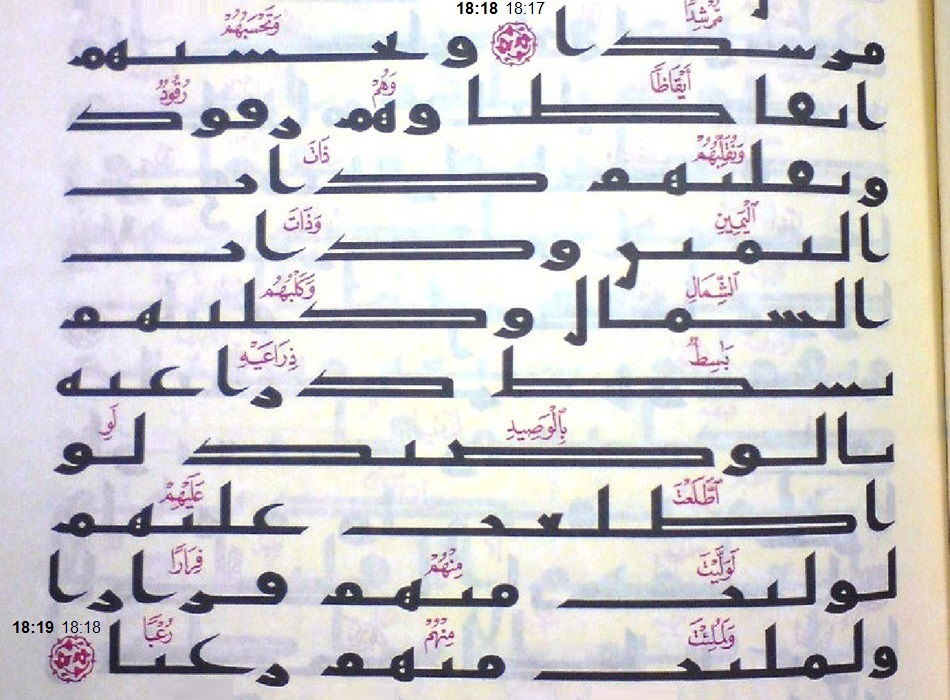 18:18 18:17
مُّرْشِدًا وَتَحْسَبُهُمْ
مرشدا وتحسبهم
أَيْقَاظًا وَهُمْ رُقُودٌ
ايقاظا وهم رقود
وَنُقَلِّبُهُمْ ذَاتَ
ونقلبهم ذات
ٱلْيَمِينِ وَذَاتَ
اليمين وذات
ٱلشِّمَالِ وَكَلْبُهُم
الشمال وكلبهم
بَٰسِطٌ ذِرَاعَيْهِ
بسط ذراعيه
بِٱلْوَصِيدِ لَوِ
بالوصيد لو
ٱطَّلَعْتَ عَلَيْهِمْ
اطلعت عليهم
لَوَلَّيْتَ مِنْهُمْ فِرَارًا
لوليت منهم فرارا
18:19 18:18
وَلَمُلِئْتَ مِنْهُمْ رُعْبًا
ولملئت منهم رعبا